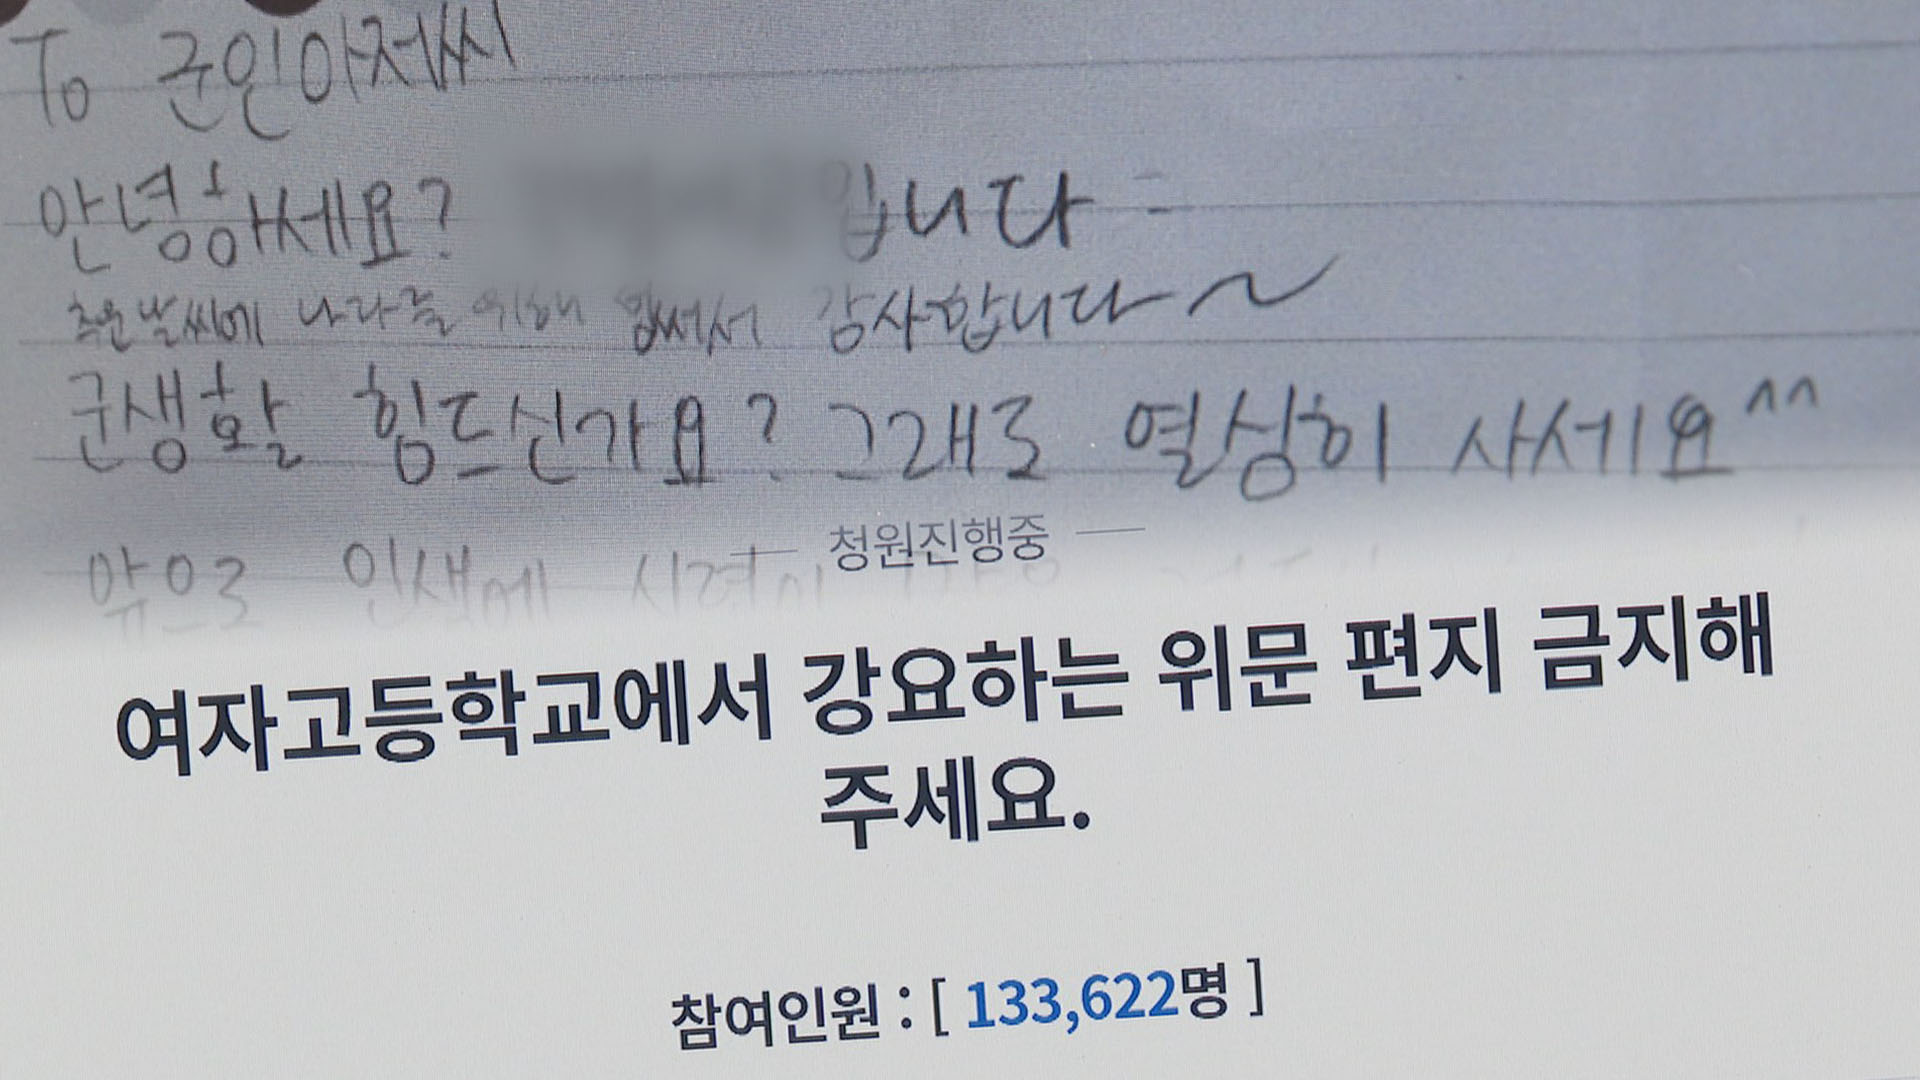 To 군인아저씨
안녕하세요? 입니다
추운날씨에 나라를 위해 감사합니다~
군생활 힘드신가요? 그래도 열심히 사세요^^
앞으로 인생에 시련이
청원진행중
여자고등학교에서 강요하는 위문 편지 금지해
주세요.
참여인원 : [ 133,622명 ]